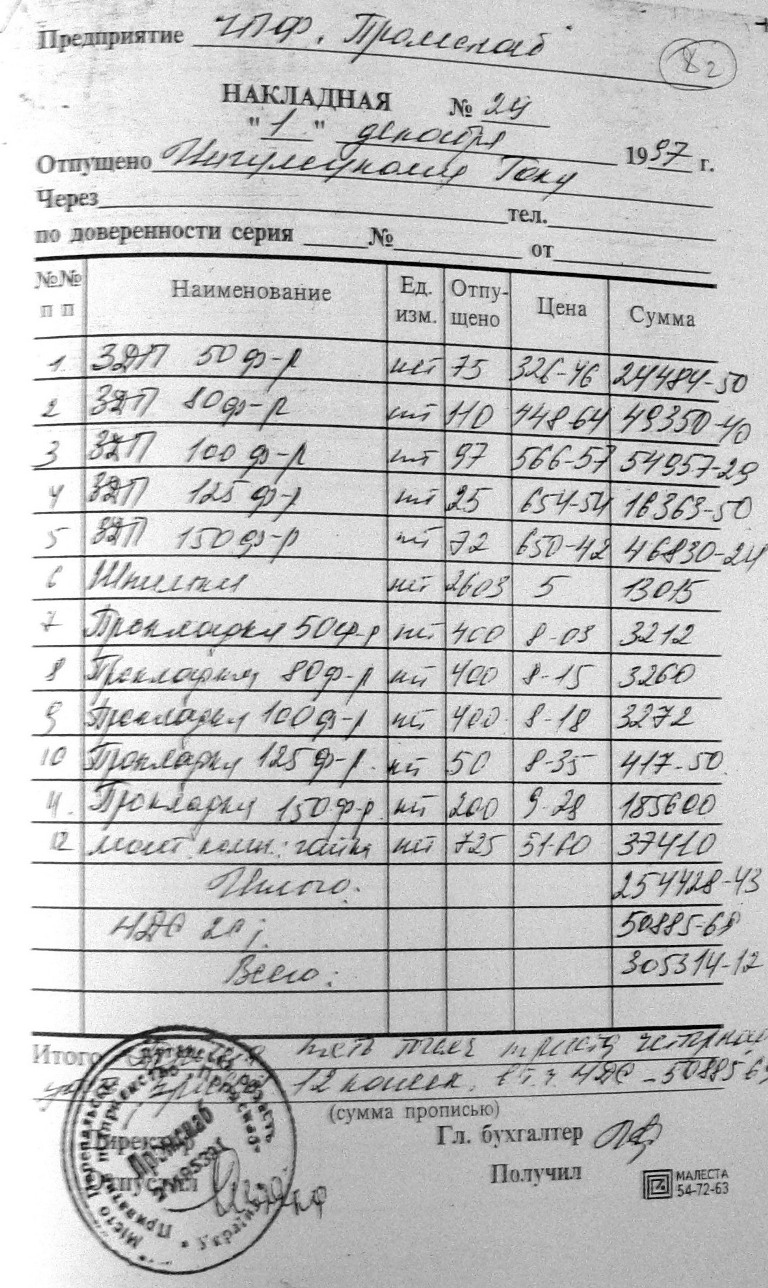 Предприятие ЧПФ. Промснаб
82
НАКЛАДНАЯ № 29
"1" декабря 1997 г.
Отпущено Ингулецкому Гоку
Через тел.
по доверенности серия № от
№№ п п Наименование Ед. изм. Отпущено Цена Сумма
1 ЗДП 50 ф-р шт 75 326-46 24484-50
2 ЗДП 80 ф-р шт 110 448-64 49350-40
3 ЗДП 100 ф-р шт 97 566-57 54957-29
4 ЗДП 125 ф-р шт 25 654-54 16363-50
5 ЗДП 150 ф-р шт 72 650-42 46830-24
6 Шпильки шт 2603 5 13015
7 Прокладки 50 ф-р шт 400 8-03 3212
8 Прокладки 80 ф-р шт 400 8-15 3260
9 Прокладки 100 ф-р шт 400 8-18 3272
10 Прокладки 125 ф-р. шт 50 8-35 417-50
11. Прокладки 150 ф-р шт 200 9-28 185600
12 шт 725 51-60 37410
Итого: 254428-43
НДС 50885-68
Всего: 305314-12
Итого пять тысяч триста
12 копеек. в т.ч. НДС - 50885
(сумма прописью)
Директор Гл. бухгалтер
Отпустил Получил
Промснаб
МАЛЕСТА
54-72-63